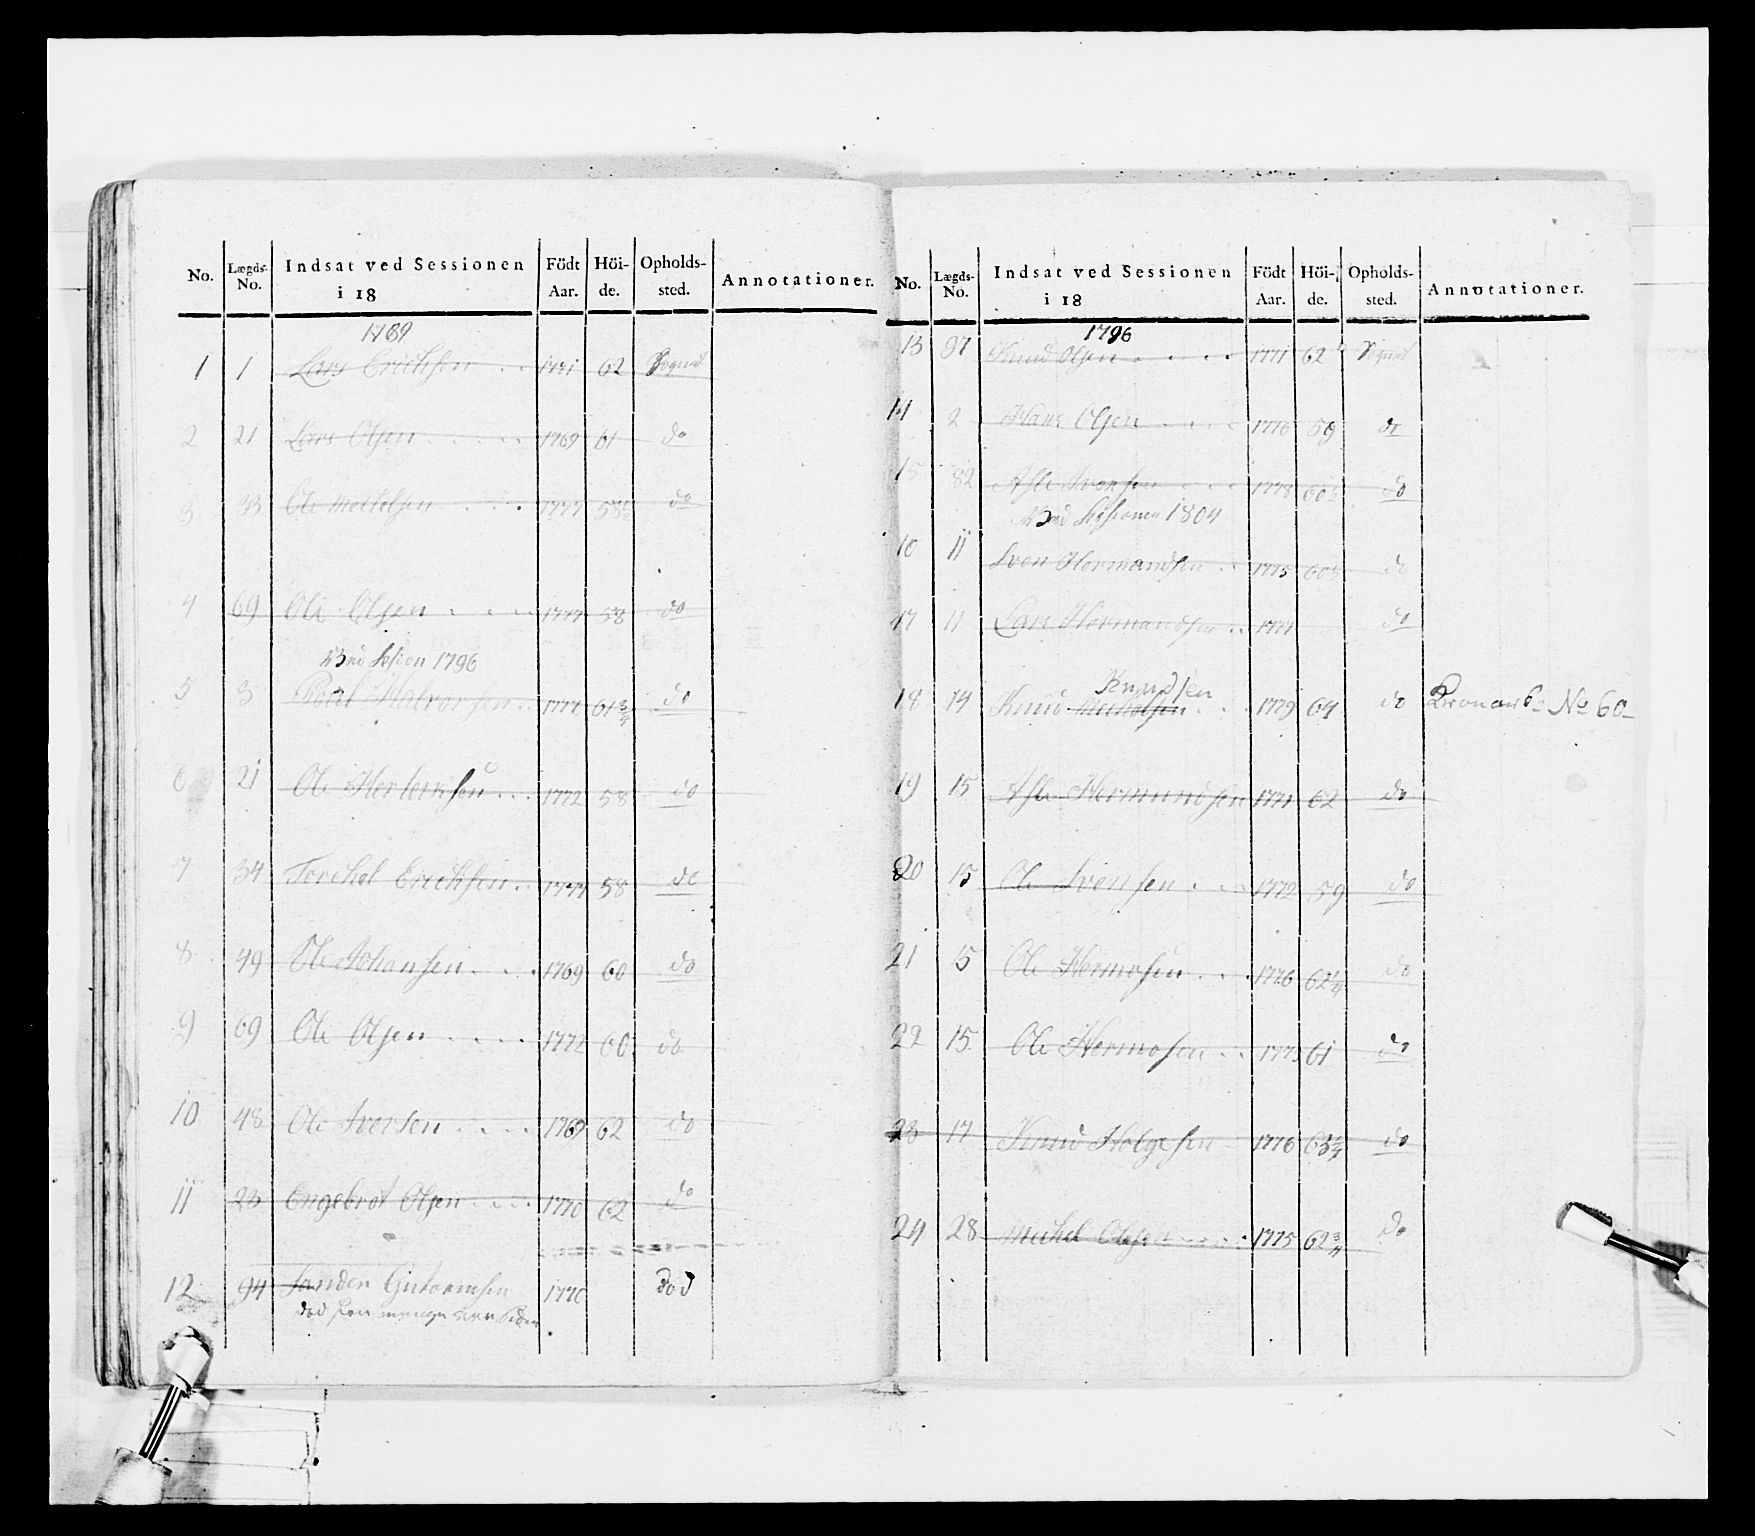 No. Lægds-No. Indsat ved Sessionen i 18 Födt Aar. Höi-de. Opholds-sted. Annotationer.
1789
1 1 Lars Erichsen 62 Sognet
2 21 Lars Olsen 1769 61 do
3 33 Ole Mechelsen 1777 58½ do
4 69 Ole Olsen 1777 58 do
Ved Session 1796
5 3 Poul Halvorsen 1777 61¾ do
6 21 Ole 1772 58 do
7 34 Torchel Erichsen 1777 58 do
8 49 Ole Johansen 1769 60 do
9 69 Ole Olsen 1772 60 do
10 48 Ole Iversen 1769 62 do
11 23 Engebret Olsen 1770 62 do
12 94 Sanden Gutormsen 1770 död
död for mange
No. Lægds-No. Indsat ved Sessionen i 18 Födt Aar. Höi-de. Opholds-sted. Annotationer.
1796
13 97 Knud Olsen 1771 62 Sognet
14 2 Hans Olsen 1776 59 do
15 82 Asle Iversen 1778 60½ do
Ved Sessionen 1804
16 11 Iver Hermandsen 1775 60½ do
17 11 Lars Hermandsen 1777 " do
Knudsen
18 14 Knud Mechelsen 1779 64 do Kronarb No 60
19 15 Asle Hermundsen 1771 62 do
20 15 Ole Svensen 1772 59 do
21 15 Ole Hermosen 1776 62¼ do
22 15 Ole Hermosen 1773 61 do
23 17 Knud Holgesen 1776 63¾ do
24 28 Mechel Olsen 1775 62¾ do